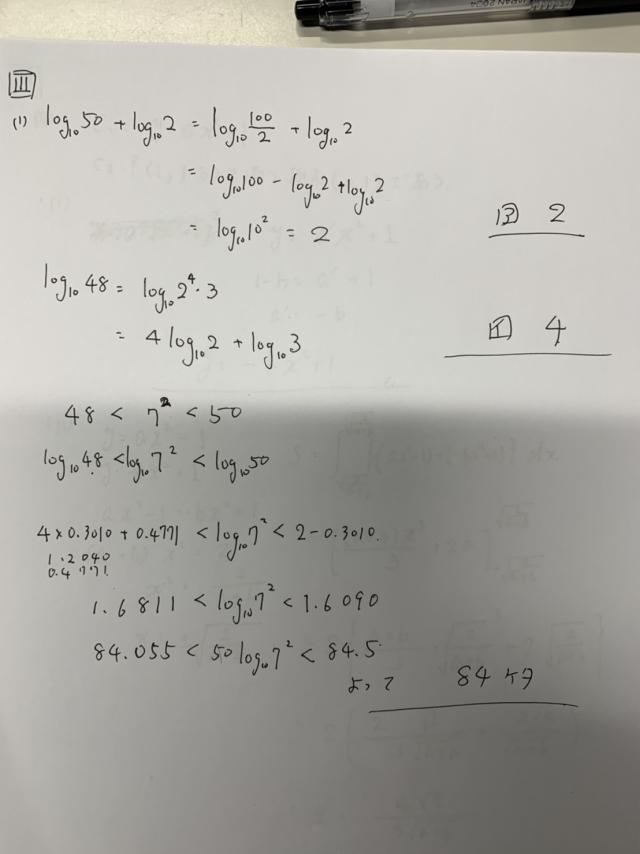 III
(1) log₁₀50 + log₁₀2 = log₁₀ 100/2 + log₁₀2
= log₁₀100 - log₁₀2 + log₁₀2
= log₁₀10² = 2
ア 2
log₁₀48 = log₁₀2⁴・3
= 4log₁₀2 + log₁₀3
イ 4
48 < 7² < 50
log₁₀48 < log₁₀7² < log₁₀50
4×0.3010 + 0.4771 < log₁₀7² < 2-0.3010.
1.2040
0.4771
1.6811 < log₁₀7² < 1.6090
84.055 < 50log₁₀7² < 84.5
よって 84ケタ